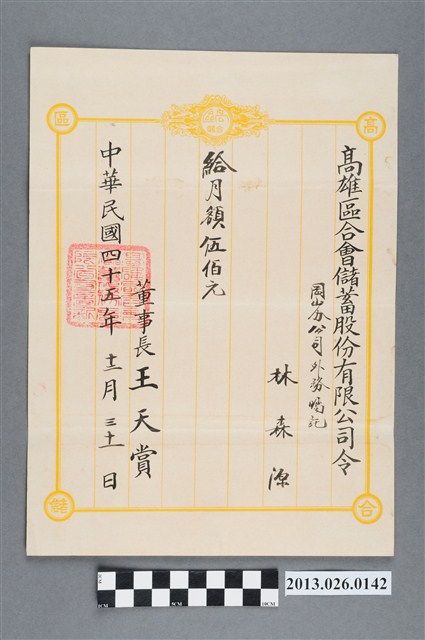 高雄區合會儲蓄股份有限公司令
岡山分公司外務
林森源
給月額伍佰元
董事長王天賞
中華民國四十五年十二月三十一日
高
區
合
儲
2013.026.0142
5CM
10CM